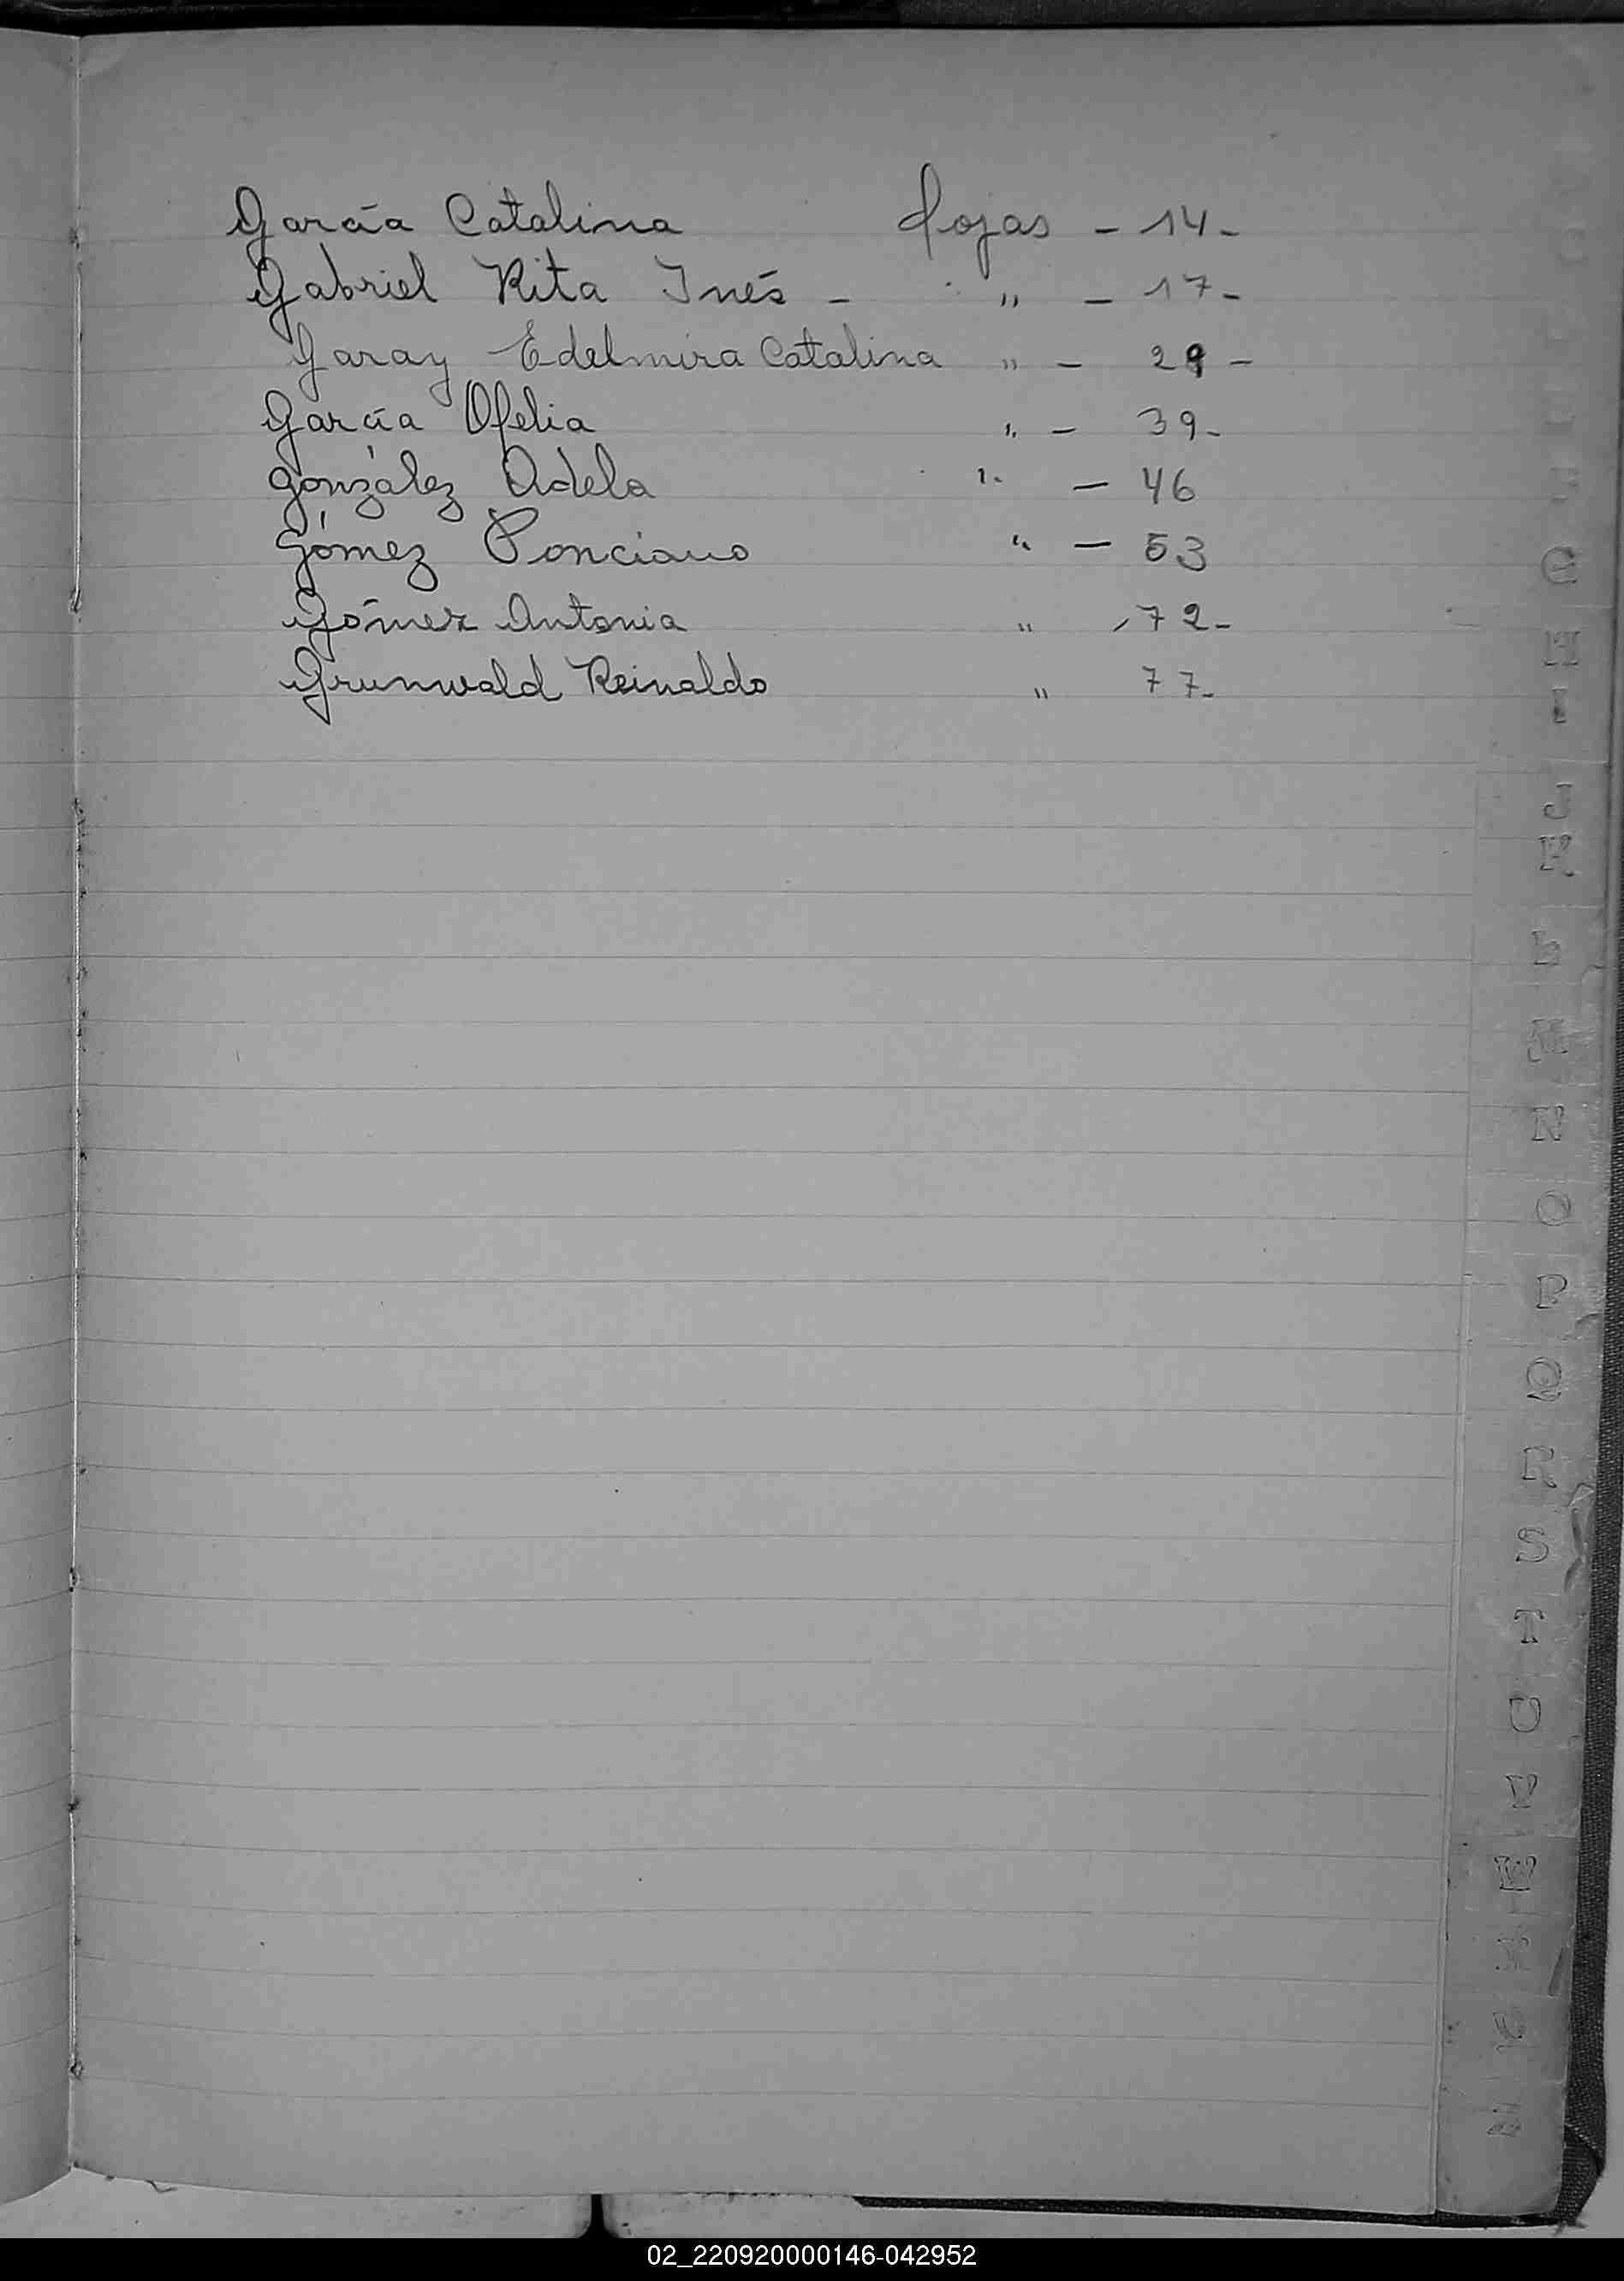 García Catalina fojas - 14-
Gabriel Rita Inés - " - 17-
Garay Edelmira Catalina " - 29 -
García Ofelia " - 39-
González Adela " - 46
Gómez Ponciano " - 53
Gómez Antonia " -72-
Grunwald Reinaldo " 77-
G
H
I
J
K
L
M
N
O
P
Q
R
S
T
U
V
W
X
Y
Z
02_220920000146-042952